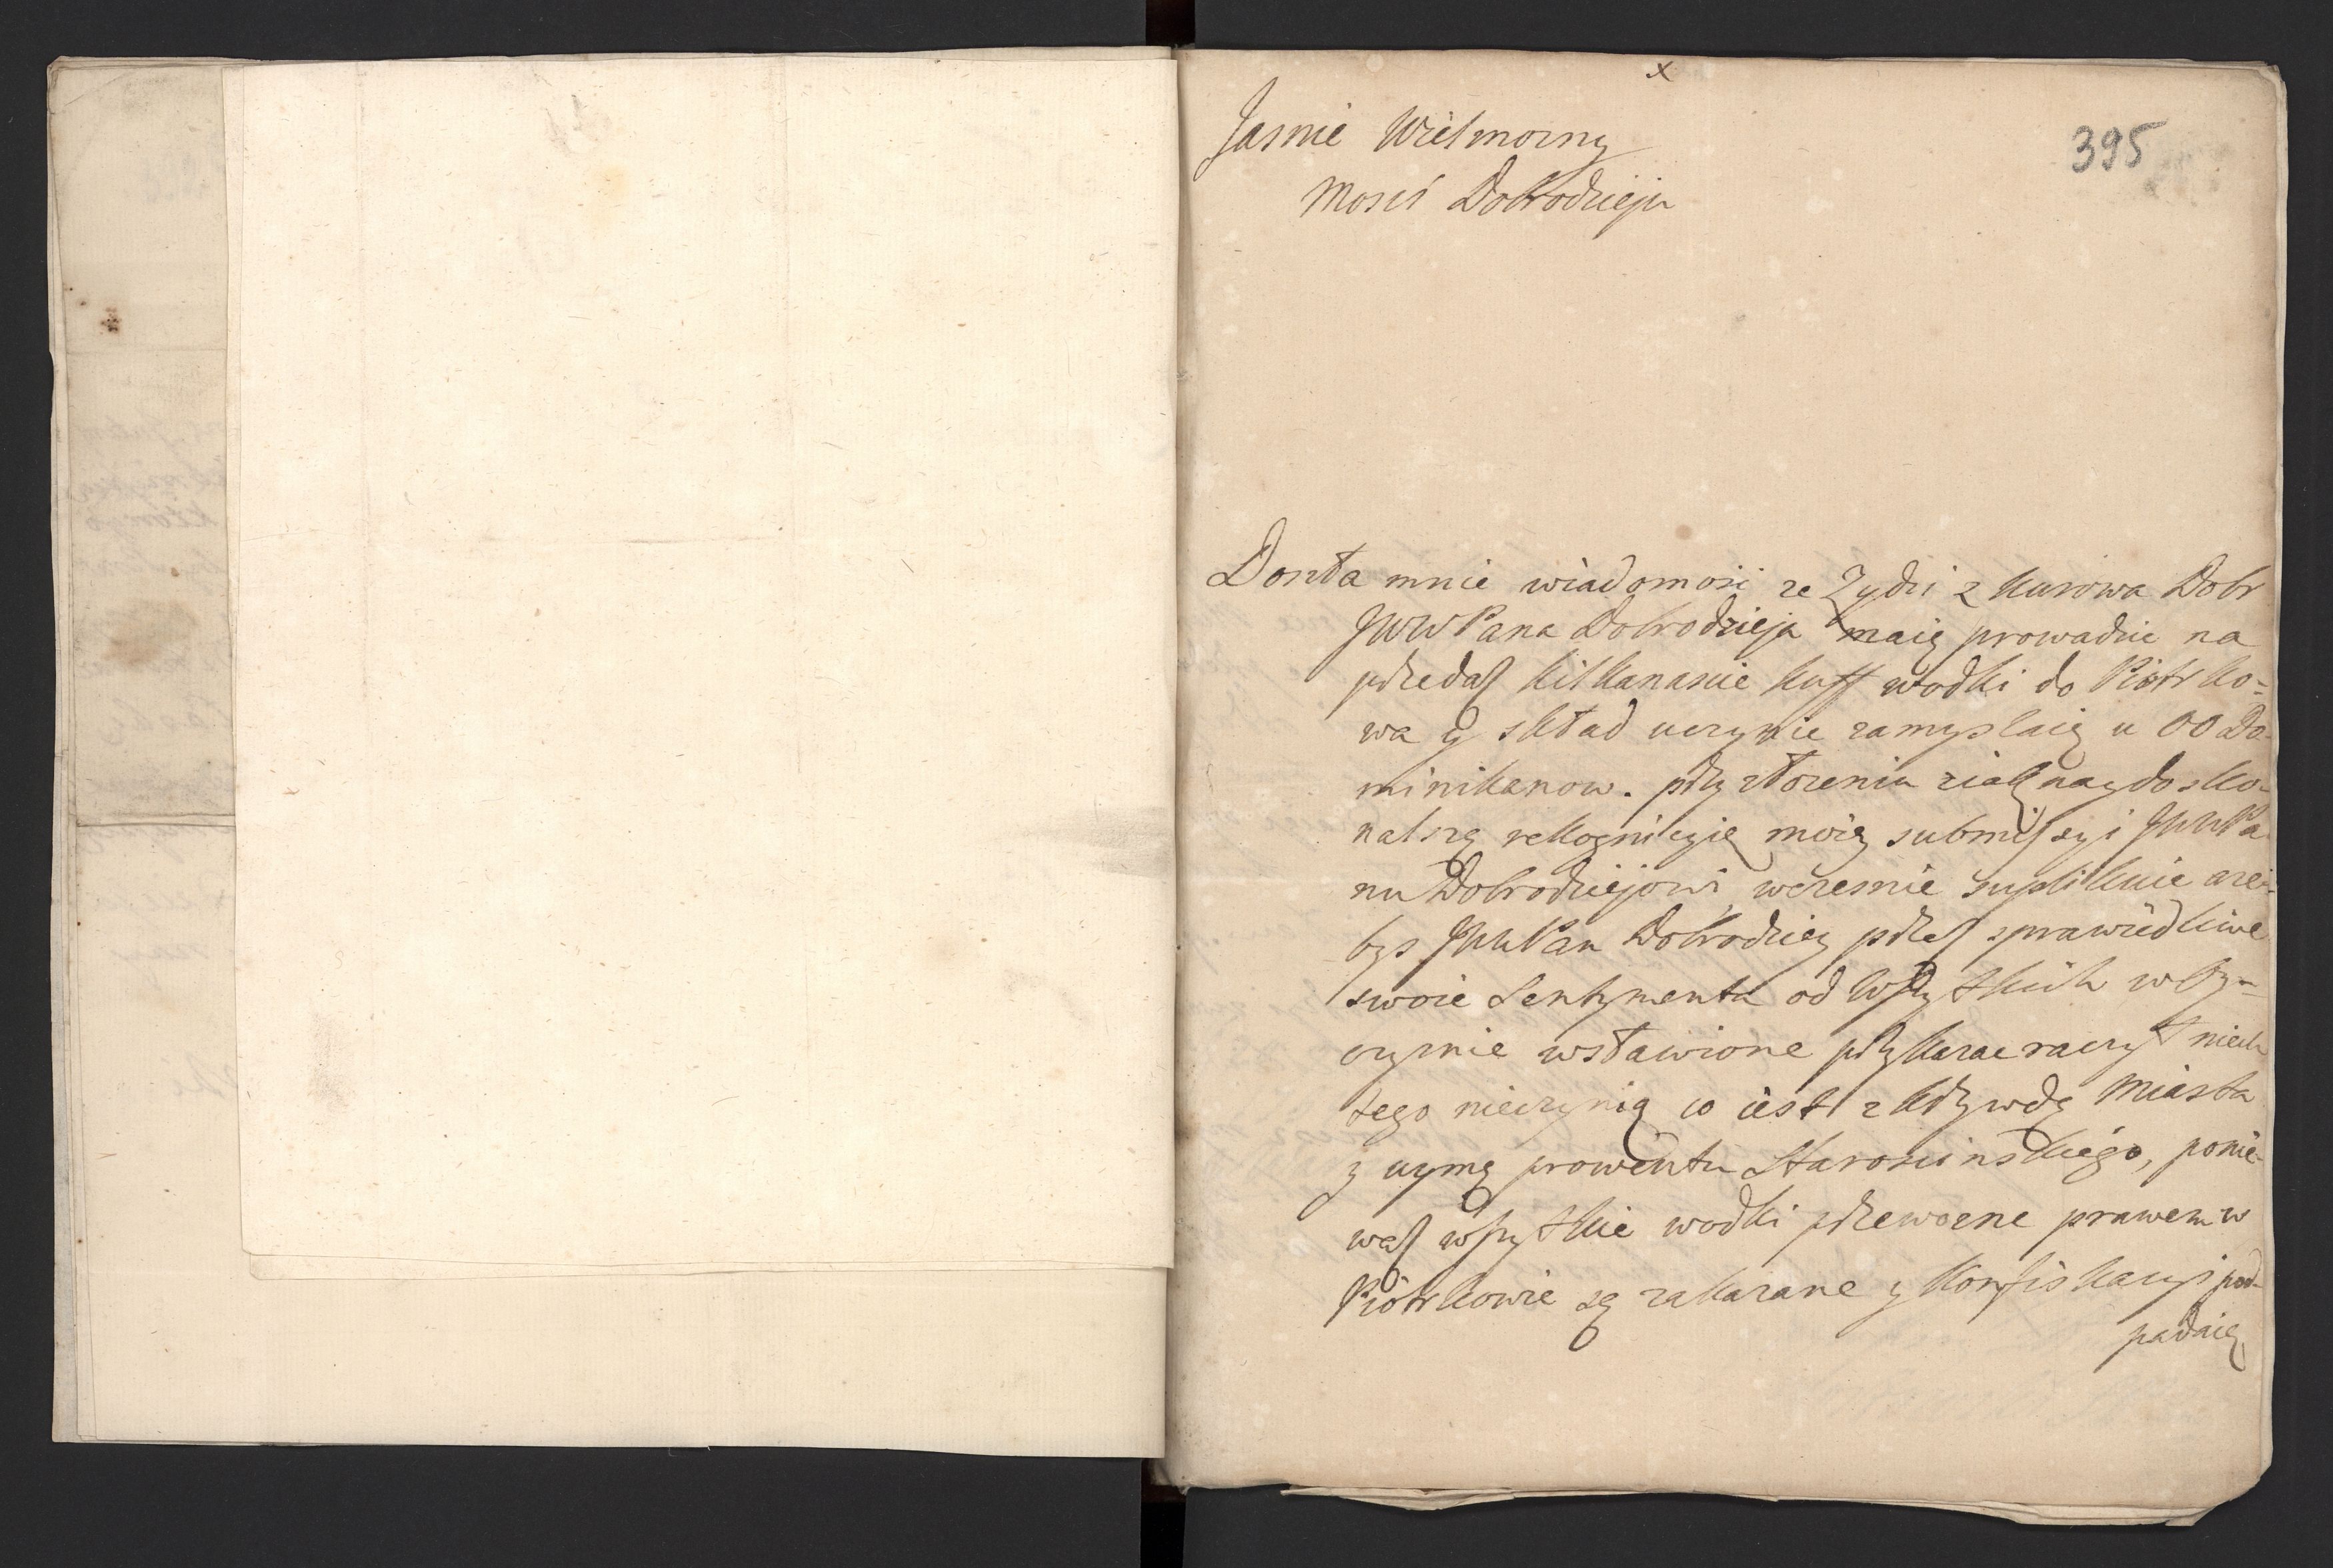 x
395
Jasnie Wielmozny
Mosci Dobrodzieju
Doszła mnie wiadomosc ze Zydzi z Kurowa Dobr
JWWPana Dobrodzieja maią prowadzic na
przedasz kilkanascie kuff wodki do Piotrko-
wa y skład uczynic zamyslaią u OO Do-
minikanow. przy złozeniu ziaḱ naydosko-
nalszą rekognicyią moią submissyi JWWPa
nu Dobrodziejowi, wczesnie suplikuie aze-
bys JWWPan Dobrodziey przez sprawiedliwe
swoie Sentymenta od wszytkich w Oy-
czyznie wsławione przykazac raczył niech
tego nieczynią co iest z krzywdą Miasta
y uymą prowentu Staroscinskiego, ponie-
wasz wszytkie wodki przewozne prawem w
Piotrkowie są zakazane y konfiskacyi pod-
padaią